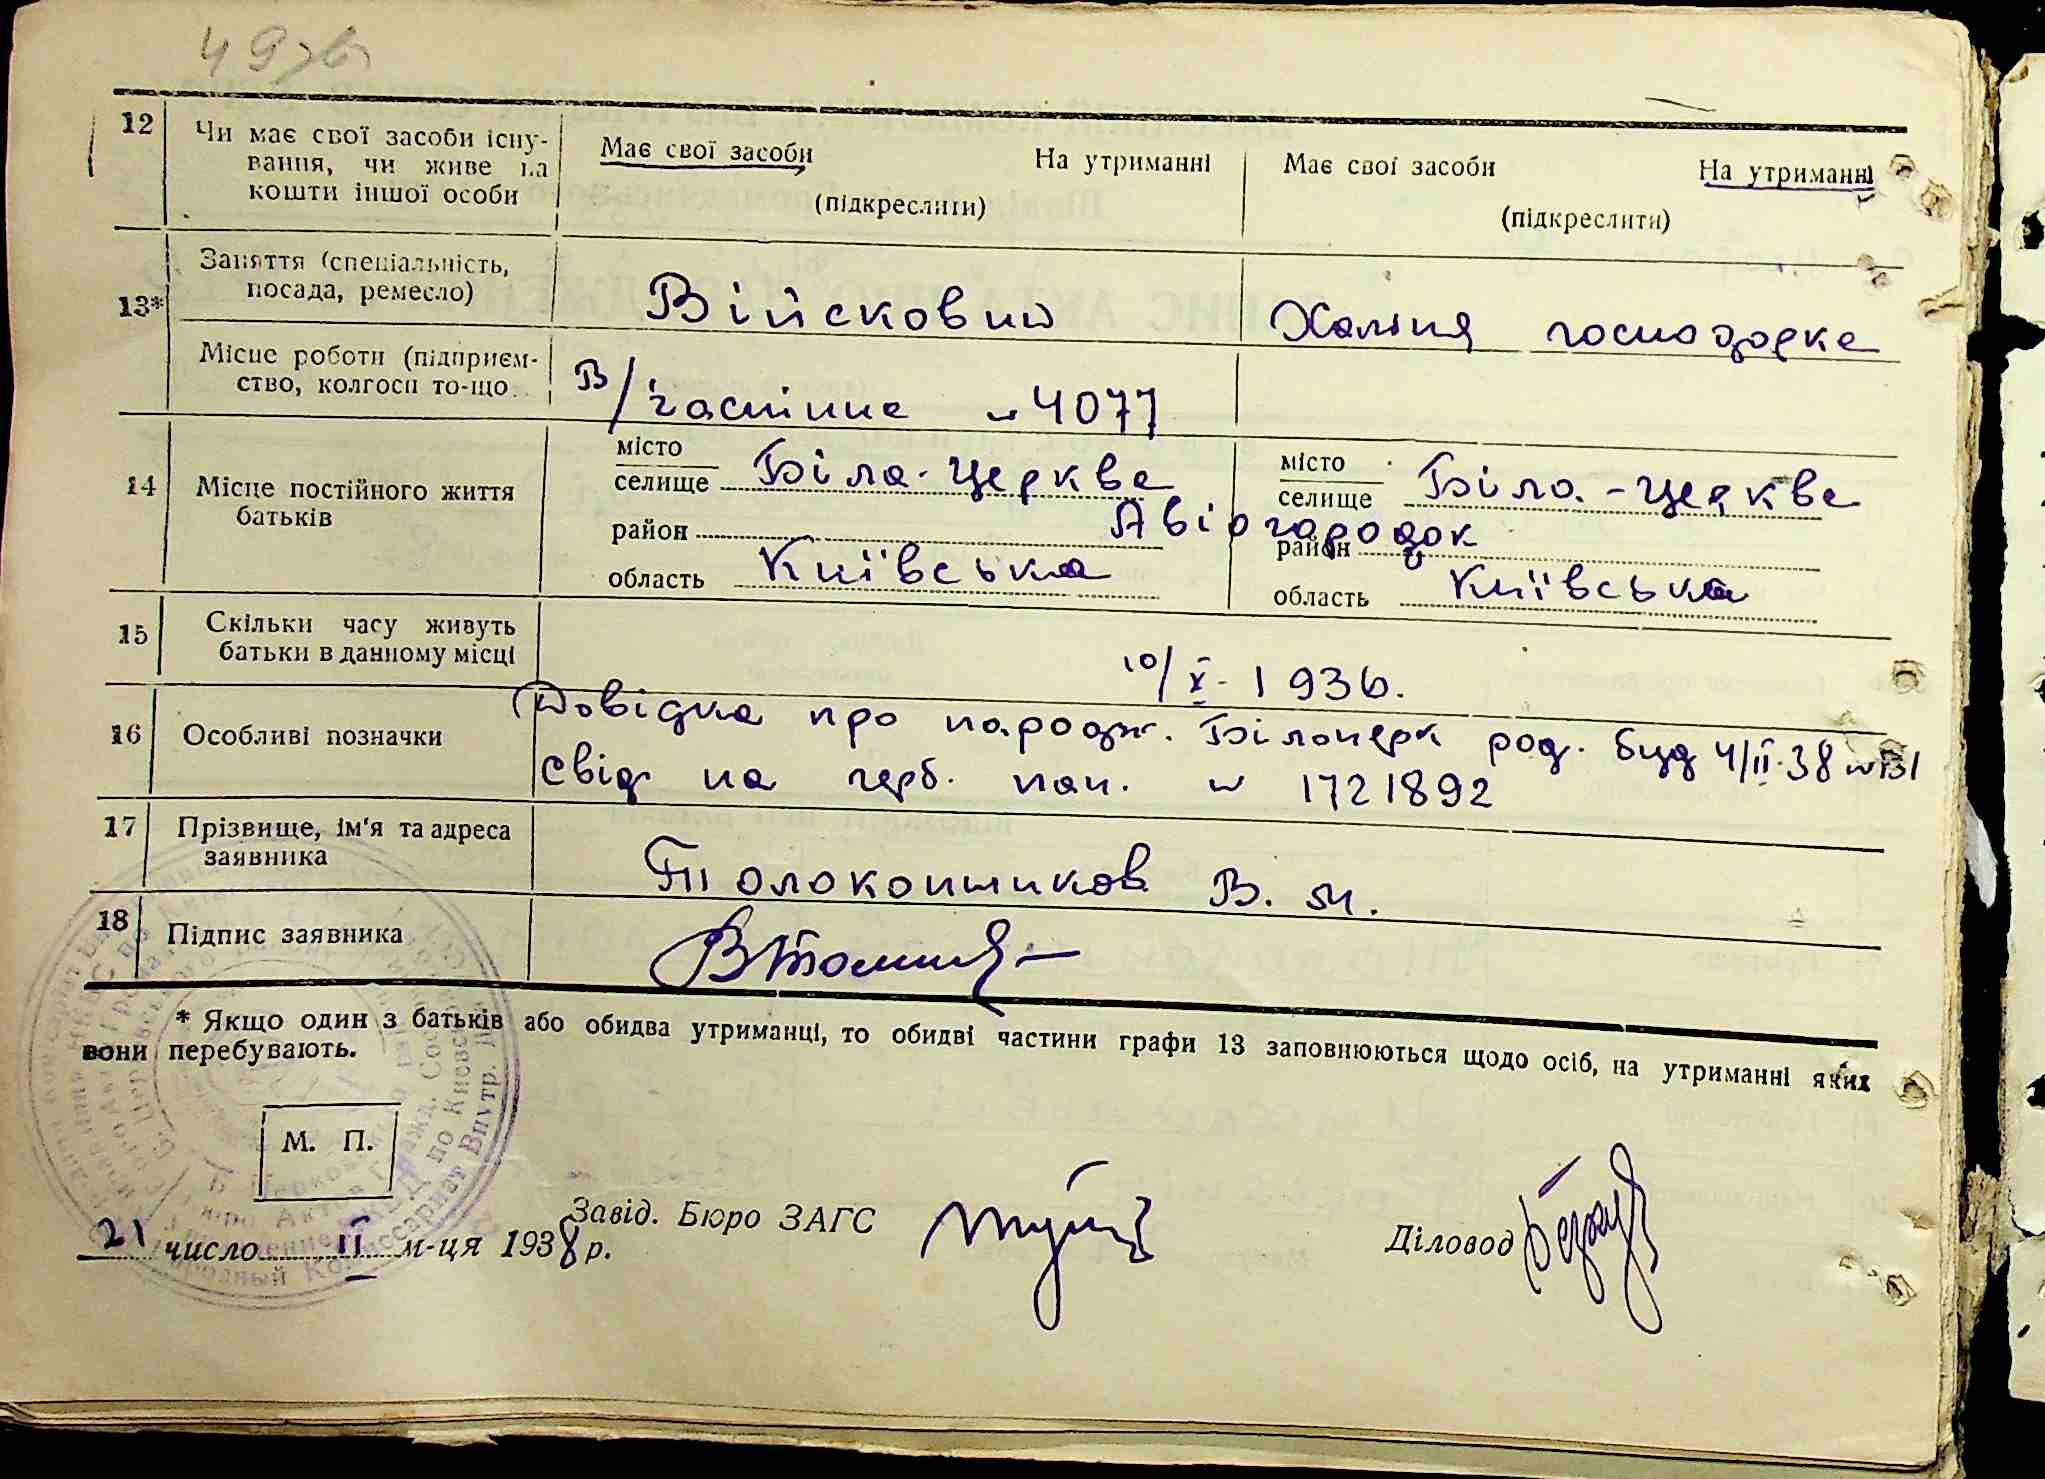 49зв
12 Чи має свої засоби існу-
вання, чи живе на
кошти іншої особи
Має свої засоби На утриманні
(підкреслити)
Має свої засоби На утриманні
(підкреслити)
13*
Заняття (спеціальність,
посада, ремесло)
Військовий
Хатня господарка
Місце роботи (підприєм-
ство, колгосп то-що
В/частине № 4077
14 Місце постійного життя
батьків
місто
селище Біла-Церква
район
область Київська
Авіогородок
місто
селище Біла-Церква
район
область Київська
15 Скільки часу живуть
батьки в данному місці
10/X-1936.
16 Особливі позначки
Довідка про народж. Білоцерк род. буд 4/II-38 № 131
Свід на герб. пап. № 1721892
17 Прізвище, ім'я та адреса
заявника
Толоконников В. М.
18 Підпис заявника
* Якщо один з батьків або обидва утриманці, то обидві частини графи 13 заповнюються щодо осіб, на утриманні яких
вони перебувають.
М. П.
21 число II м-ця 1938 р.
Завід. Бюро ЗАГС
Діловод